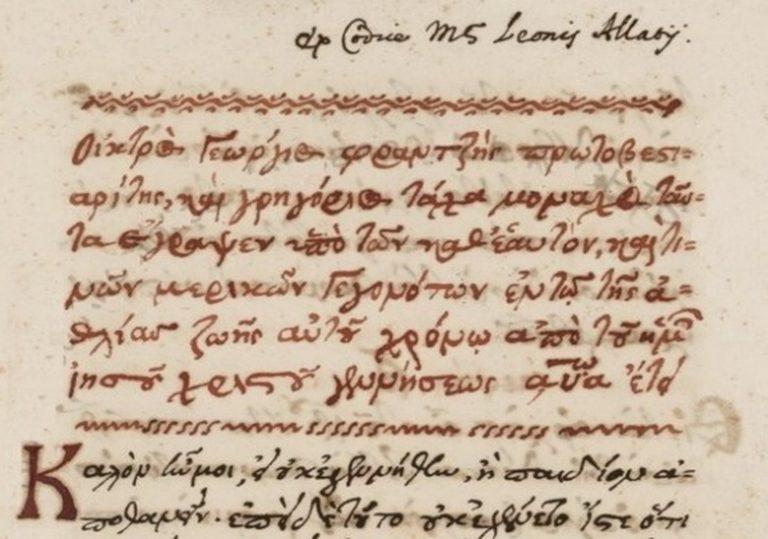 ex Codice MS Leonis Allatij.
Οἰκτρὸς Γεώργιος φραντζῆς πρωτοβεστι=
αρίτης, καὶ γρηγόριος τάχα μοναχὸς ταῦ=
τα ἔγραψεν ὑπὸ τῶν καθ' ἑαυτὸν, καὶ τι=
νῶν μερικῶν γεγονότων ἐν τῷ τῆς ἀ=
θλίας ζωῆς αὐτοῦ χρόνῳ ἀπὸ τοῦ
ἰησοῦ χριστοῦ γεννήσεως
Καλὸν ἦν μοι, εἰ οὐκ ἐγεννήθην, ἢ παιδίον ἀ=
ποθανεῖν. ἐπεὶ δὲ τοῦτο οὐκ ἐγένετο ἴστε ὅτι